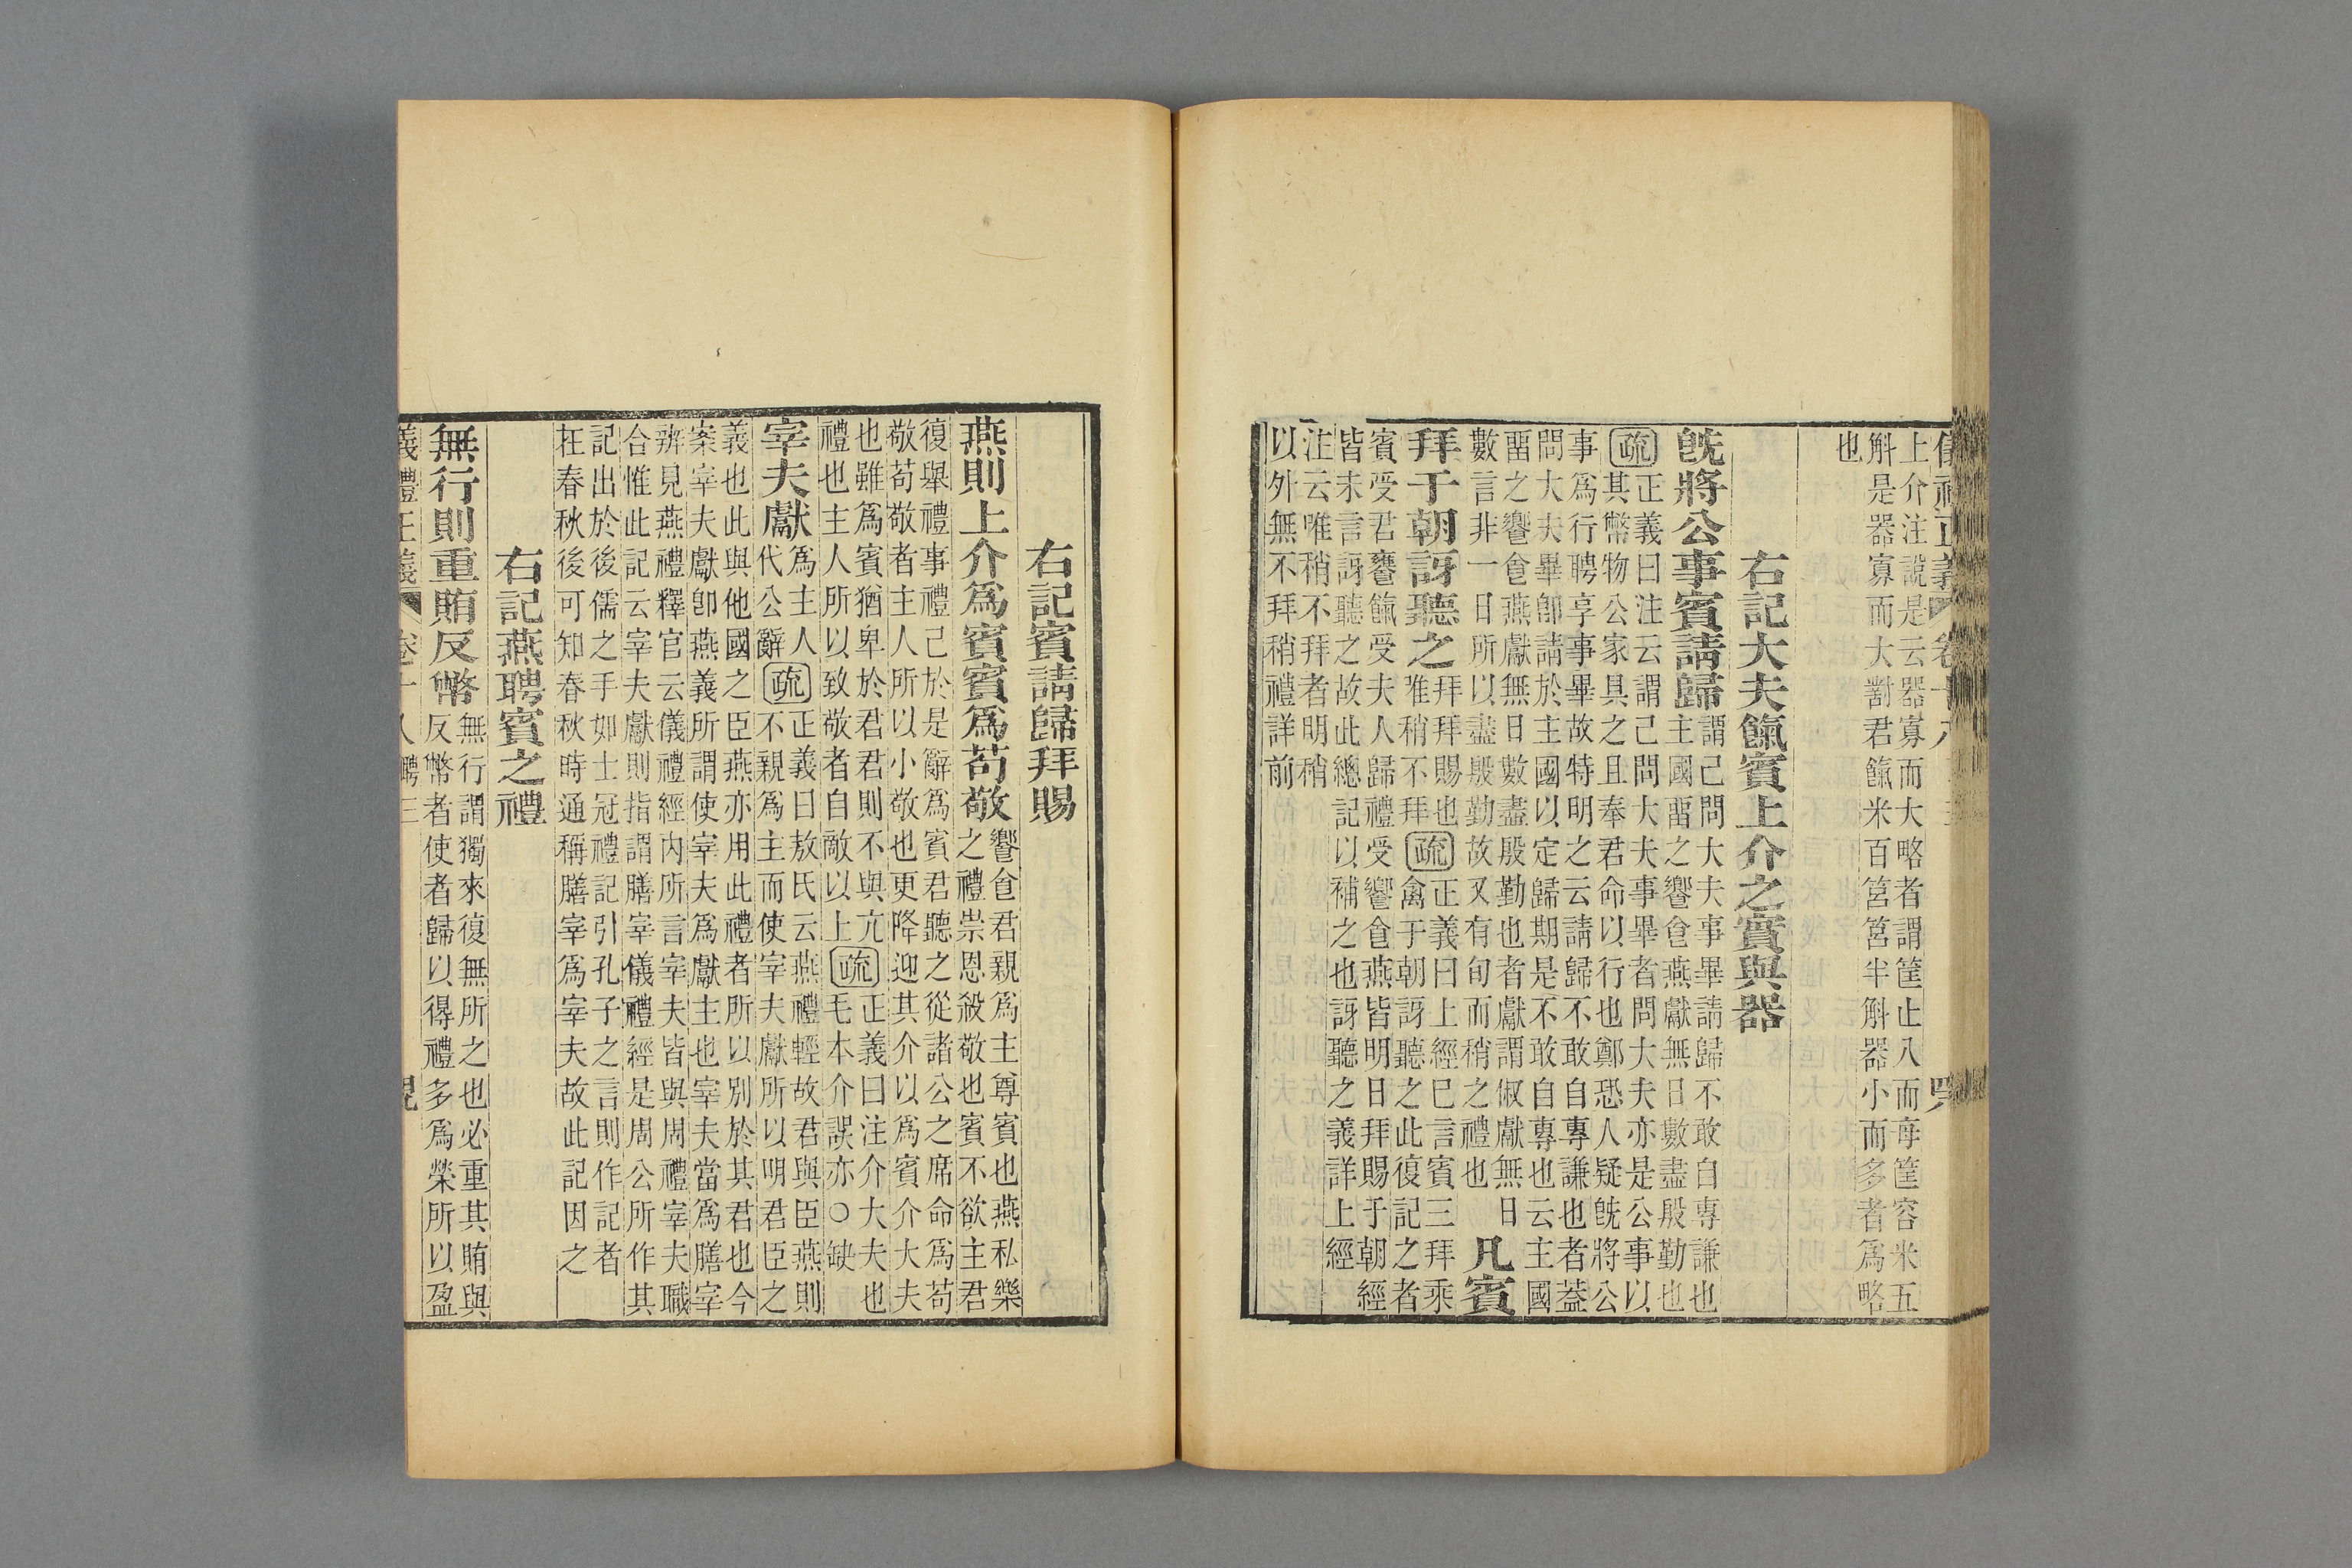 上介注說是云器寡而大略者謂筐止八而每筐容米五
斛是器寡而大對君餼米百筥筥半斛器小而多者爲略
也
右記大夫餼賓上介之實與器
旣將公事賓請歸
謂己問大夫事畢請歸不敢自專謙也
主國畱之饗食燕獻無日數盡殷勤也
疏
正義曰注云謂己問大夫事畢者問大夫亦是公事以
其幣物公家具之且奉君命以行也鄭恐人疑旣將公
事爲行聘享事畢故特明之云請歸不敢自專謙也者蓋
問大夫畢卽請於主國以定歸期是不敢自專也云主國
畱之饗食燕獻無日數盡殷勤也者獻謂俶獻無日
數言非一日所以盡殷勤故又有旬而稍之禮也
凡賓
拜于朝訝聽之
拜拜賜也
唯稍不拜
疏
正義曰上經已言賓三拜乘
禽于朝訝聽之此復記之者
賓受君饔餼受夫人歸禮受饗食燕皆明日拜賜于朝經
皆未言訝聽之故此總記以補之也訝聽之義詳上經
注云唯稍不拜者明稍
以外無不拜稍禮詳前
右記賓請歸拜賜
燕則上介爲賓賓爲苟敬
饗食君親爲主尊賓也燕私樂
之禮崇恩殺敬也賓不欲主君
復舉禮事禮己於是辭爲賓君聽之從諸公之席命爲苟
敬苟敬者主人所以小敬也更降迎其介以爲賓介大夫
也雖爲賓猶卑於君君則不與亢
禮也主人所以致敬者自敵以上
疏
正義曰注介大夫也
毛本介誤亦○缺
宰夫獻
爲主人
代公辭
疏
正義曰敖氏云燕禮輕故君與臣燕則
不親爲主而使宰夫獻所以明君臣之
義也此與他國之臣燕亦用此禮者所以別於其君也今
案宰夫獻卽燕義所謂使宰夫爲獻主也宰夫當爲膳宰
辨見燕禮釋官云儀禮經內所言宰夫皆與周禮宰夫職
合惟此記云宰夫獻則指謂膳宰儀禮經是周公所作其
記出於後儒之手如士冠禮記引孔子之言則作記者
在春秋後可知春秋時通稱膳宰爲宰夫故此記因之
右記燕聘賓之禮
無行則重賄反幣
無行謂獨來復無所之也必重其賄與
反幣者使者歸以得禮多爲榮所以盈